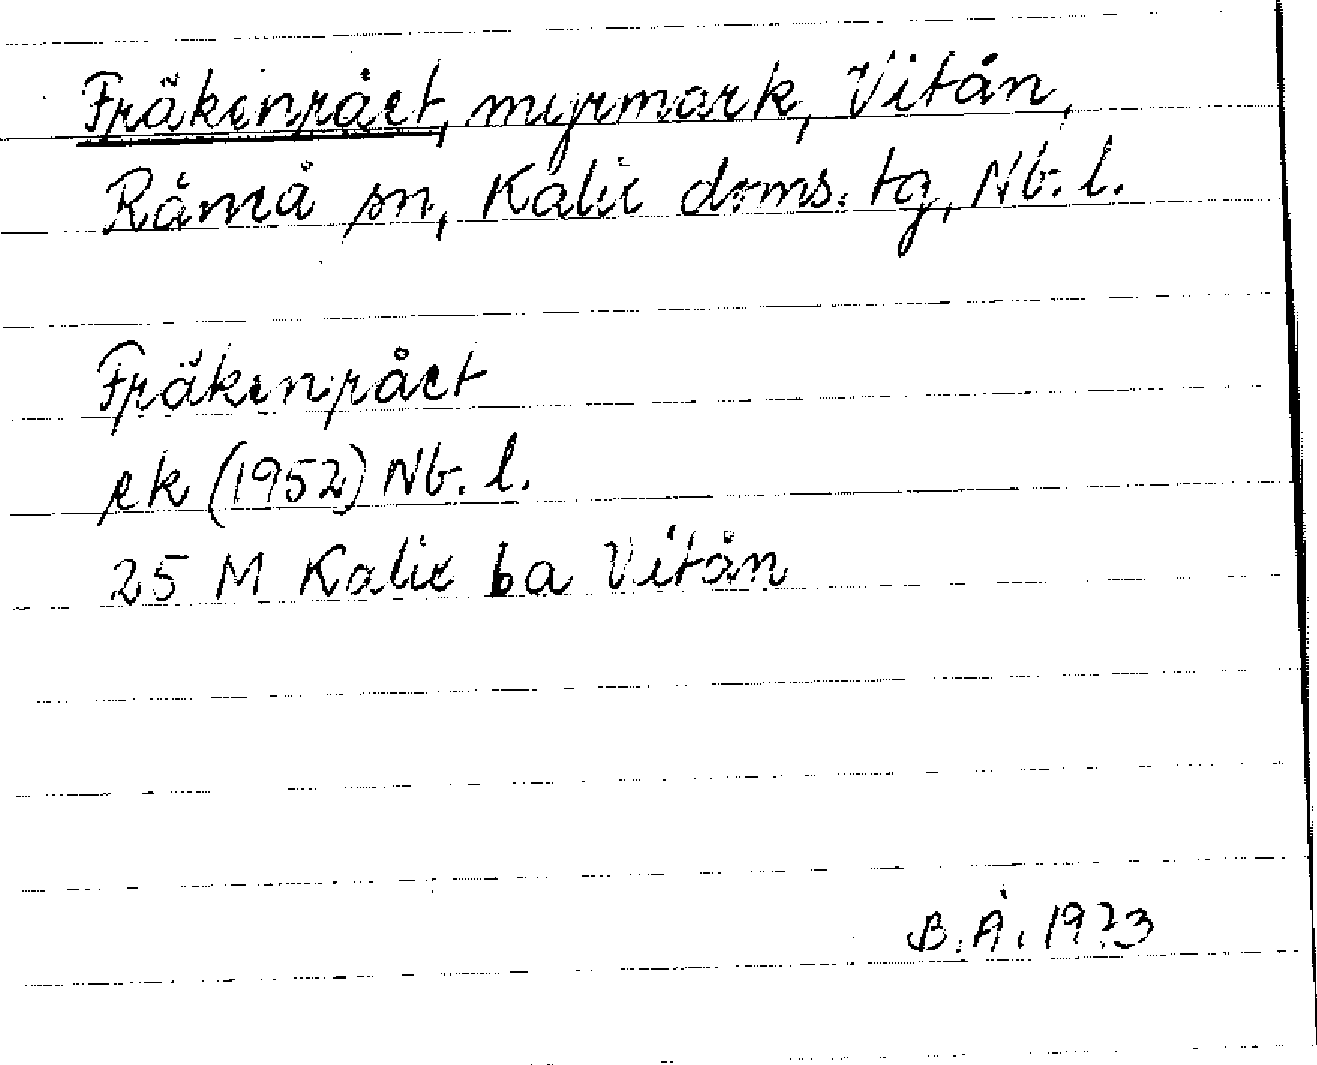 Fräkenrået, myrmark, Vitån,
Råneå sn, Kalix doms. tg, Nb. l.
Fräkenrået
ek (1952) Nb. l.
25 M Kalix ba Vitån
B.Å. 1973